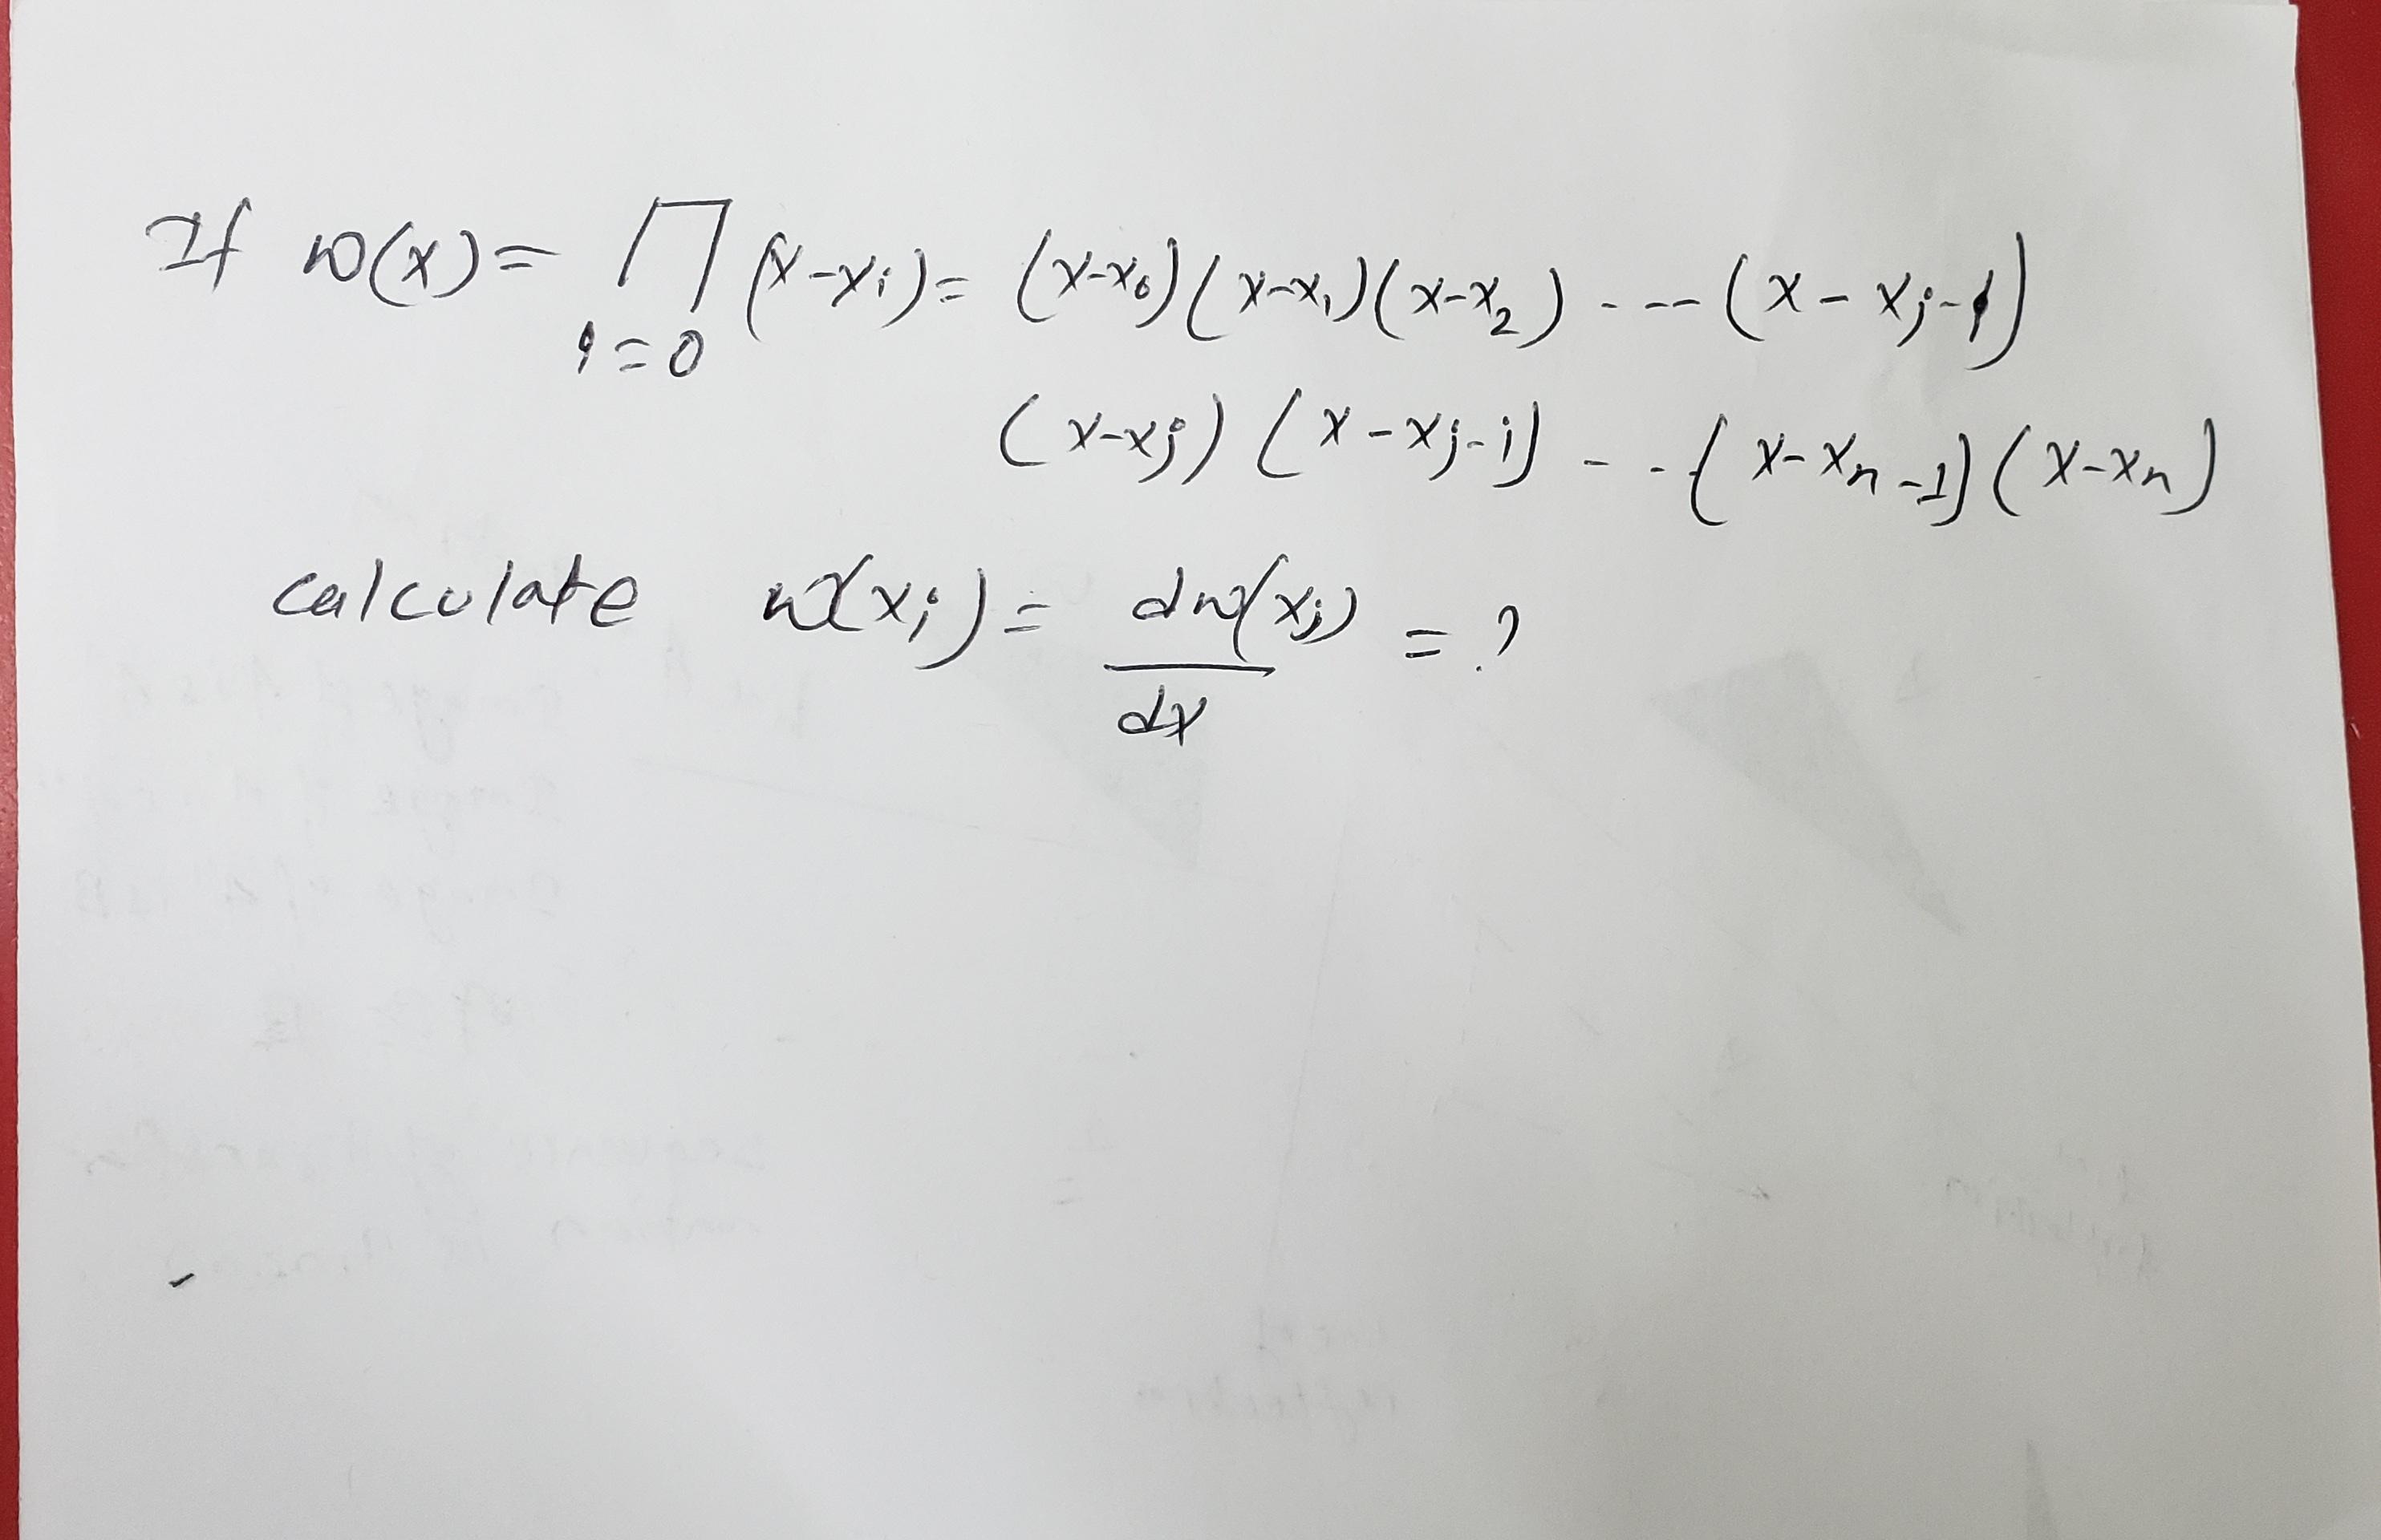 If w(x) = ∏ (x-xi) = (x-x0)(x-x1)(x-x2) - -- (x - xj-1)
i=0
(x-xj) (x - xj-i) - - - (x-xn-1)(x-xn)
calculate w'(xj) = dw(xj) = ?
dx